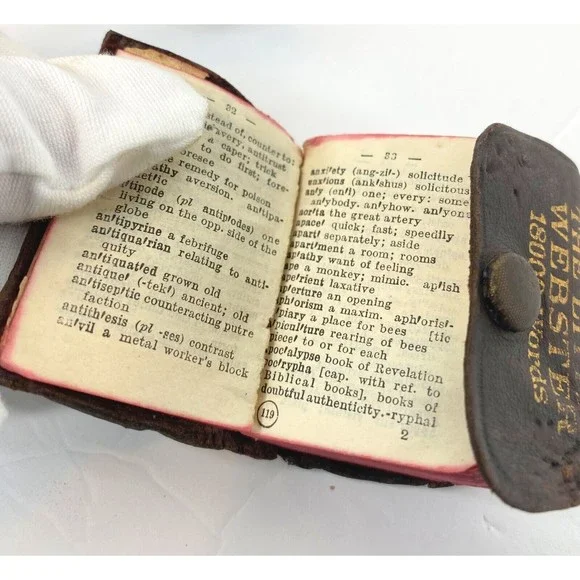 — 32 —
instead of, counter to:
avery, antitrust
a caper; trick
to do first; fore-
foresee
remedy for poison
athy aversion. an'tipa-
thet'ic
tipode (pl antip'odes) one
living on the opp. side of the
globe
an'tipyrine a febrifuge
an'tiqua'rian relating to anti-
quity
an'tiquat'ed grown old
antique' (-tek') ancient; old
an'tisep'tic counteracting putre
faction
antith'esis (pl -ses) contrast
an'vil a metal worker's block
— 33 —
anxi'ety (ang-zi'-) solicitude
anx'ious (ank'shus) solicitous
an'y (en'i) one; every: some
an'ybody. an'yhow. an'yon
aor'ta the great artery
apace' quick; fast; speedily
apart' separately; aside
apart'ment a room; rooms
ap'athy want of feeling
ape a monkey; mimic. ap'ish
ape'rient laxative
ap'erture an opening
aph'orism a maxim. aph'orist-
a'piary a place for bees [tic
a'piculture rearing of bees
apiece' to or for each
apoc'alypse book of Revelation
apoc'rypha [cap. with ref. to
Biblical books], books of
doubtful authenticity.-ryphal
119
2
WEBSTER
18000 Words